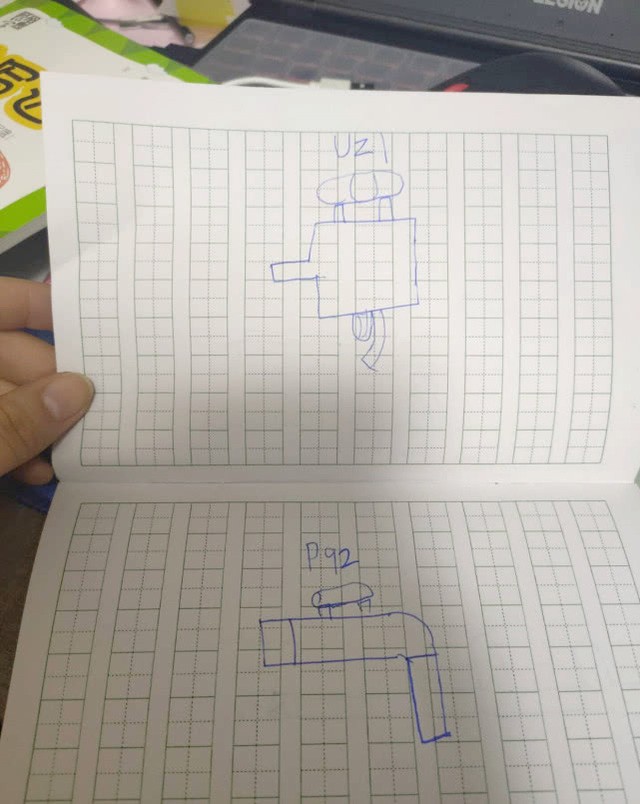 LEGION
UZ1
P92